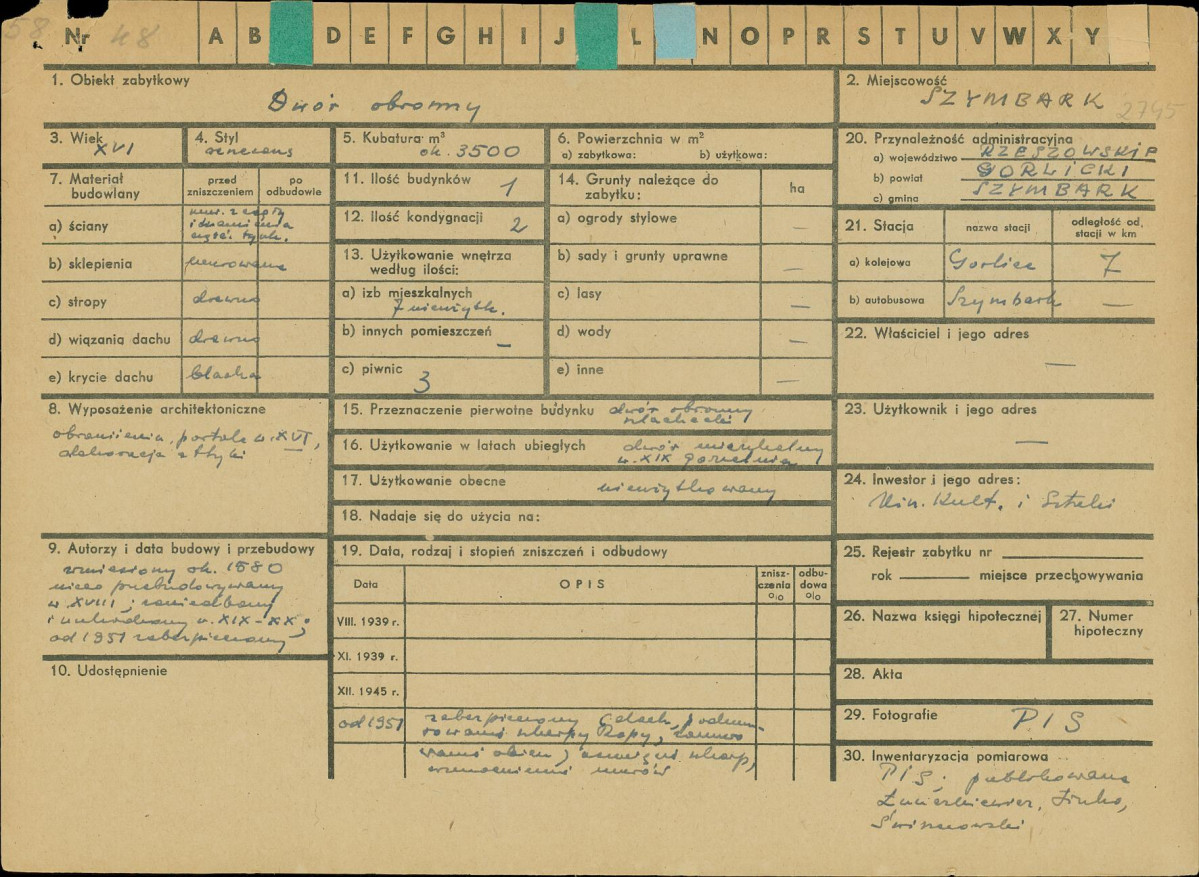 58 Nr 48 A B D E F G H I J L N O P R S T U V W X Y
1. Obiekt zabytkowy
Dwór obronny
2. Miejscowość
SZYMBARK 2745
3. Wiek
XVI
4. Styl
renesans
5. Kubatura m³
ok. 3500
6. Powierzchnia w m²
a) zabytkowa: b) użytkowa:
20. Przynależność administracyjna
a) województwo RZESZOWSKIE
b) powiat GORLICKI
c) gmina SZYMBARK
7. Materiał budowlany
przed zniszczeniem
po odbudowie
a) ściany
mur. z cegły
i kamienia
część. tynk.
b) sklepienia murowane
c) stropy drewno
d) wiązania dachu drewno
e) krycie dachu blacha
11. Ilość budynków 1
12. Ilość kondygnacji 2
13. Użytkowanie wnętrza
według ilości:
a) izb mieszkalnych
7 nieużytk.
b) innych pomieszczeń –
c) piwnic 3
14. Grunty należące do
zabytku:
ha
a) ogrody stylowe –
b) sady i grunty uprawne –
c) lasy –
d) wody –
e) inne –
21. Stacja
nazwa stacji
odległość od
stacji w km
a) kolejowa Gorlice 7
b) autobusowa Szymbark –
22. Właściciel i jego adres
–
8. Wyposażenie architektoniczne
obramienia, portale w. XVI,
dekoracja attyki
15. Przeznaczenie pierwotne budynku dwór obronny
szlachecki
16. Użytkowanie w latach ubiegłych dwór mieszkalny
w. XIX gorzelnia
17. Użytkowanie obecne nieużytkowany
18. Nadaje się do użycia na:
23. Użytkownik i jego adres
–
24. Inwestor i jego adres:
Min. Kult. i Sztuki
9. Autorzy i data budowy i przebudowy
wzniesiony ok. 1580
nieco przebudowywany
w XVIII; zaniedbany
i uszkodzony w. XIX–XX;
od 1951 zabezpieczony
10. Udostępnienie
19. Data, rodzaj i stopień zniszczeń i odbudowy
Data
OPIS
znisz-
czenia
%
odbu-
dowa
%
VIII. 1939 r.
XI. 1939 r.
XII. 1945 r.
od 1951 zabezpieczony (dach, podmu-
rowanie skarpy Ropy, zamuro
wanie okien), skarp,
wzmocnienie murów
25. Rejestr zabytku nr
rok miejsce przechowywania
26. Nazwa księgi hipotecznej
27. Numer
hipoteczny
28. Akta
29. Fotografie PIS
30. Inwentaryzacja pomiarowa
PIS; publikowana
Świszczowski